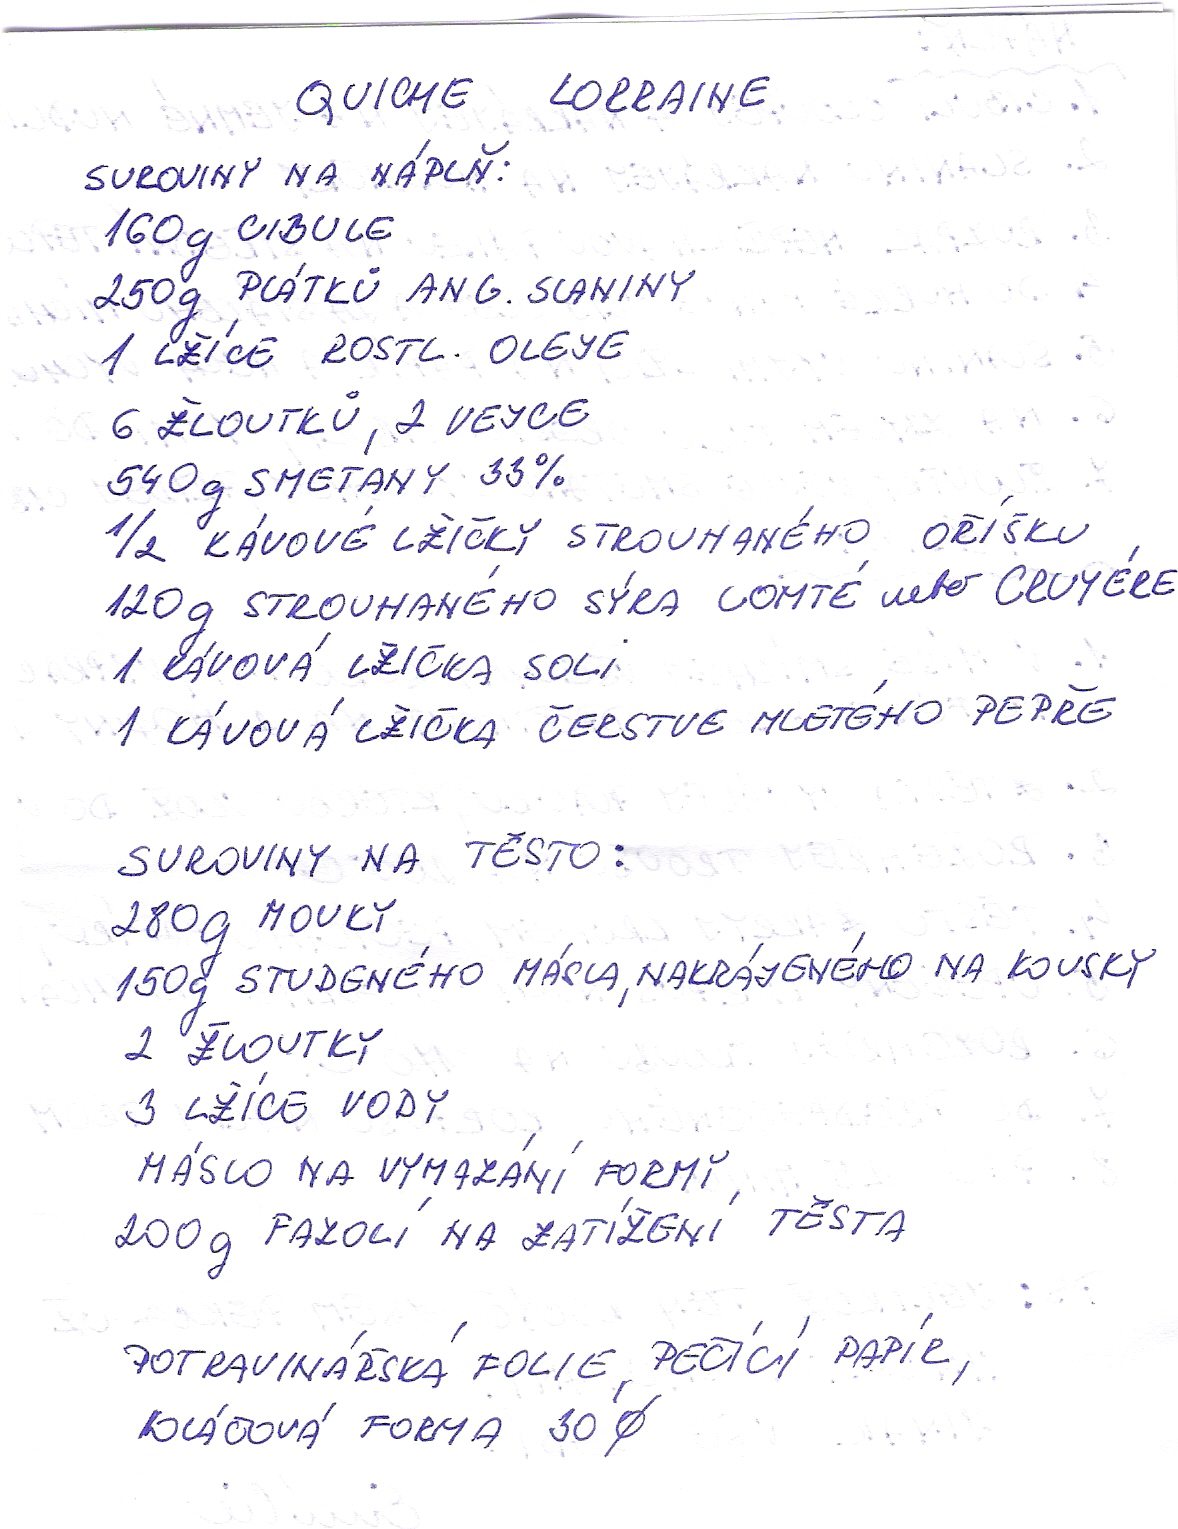 QUICHE LORRAINE
SUROVINY NA NÁPLŇ:
160g CIBULE
250g PLÁTKŮ ANG. SLANINY
1 LŽÍCE ROSTL. OLEJE
6 ŽLOUTKŮ, 2 VEJCE
540g SMETANY 33%
1/2 KÁVOVÉ LŽIČKY STROUHANÉHO OŘÍŠKU,
120g STROUHANÉHO SÝRA COMTÉ nebo GRUYÉRE
1 KÁVOVÁ LŽIČKA SOLI
1 KÁVOVÁ LŽIČKA ČERSTVE MLETÉHO PEPŘE
SUROVINY NA TĚSTO:
280g MOUKY
150g STUDENÉHO MÁSLA, NAKRÁJENÉHO NA KOUSKY
2 ŽLOUTKY
3 LŽÍCE VODY
MÁSLO NA VYMAZÁNÍ FORMY,
200g FAZOLÍ NA ZATÍŽENÍ TĚSTA
POTRAVINÁŘSKÁ FOLIE, PEČÍCÍ PAPÍR,
KOLÁČOVÁ FORMA 30 Ø